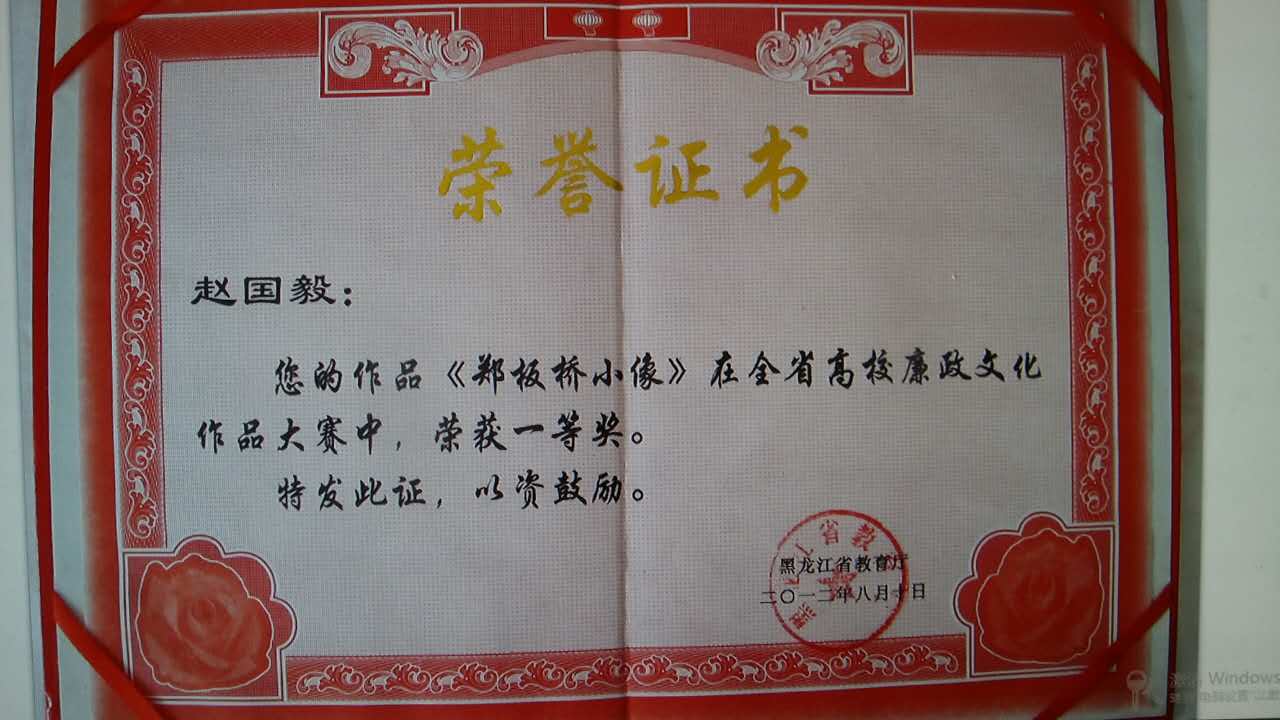 荣誉证书
赵国毅：
您的作品《郑板桥小像》在全省高校廉政文化
作品大赛中，荣获一等奖。
特发此证，以资鼓励。
黑龙江省教育厅
二〇一二年八月十日
Windows